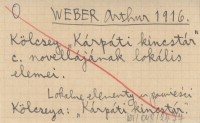 O WEBER Arthur 1916.
Kölcsey "Kárpáti kincstár"
c. novellájának lokális
elemei.
Lokalne elementy w powieści
Kölcseya: "Kárpáti kincstár".